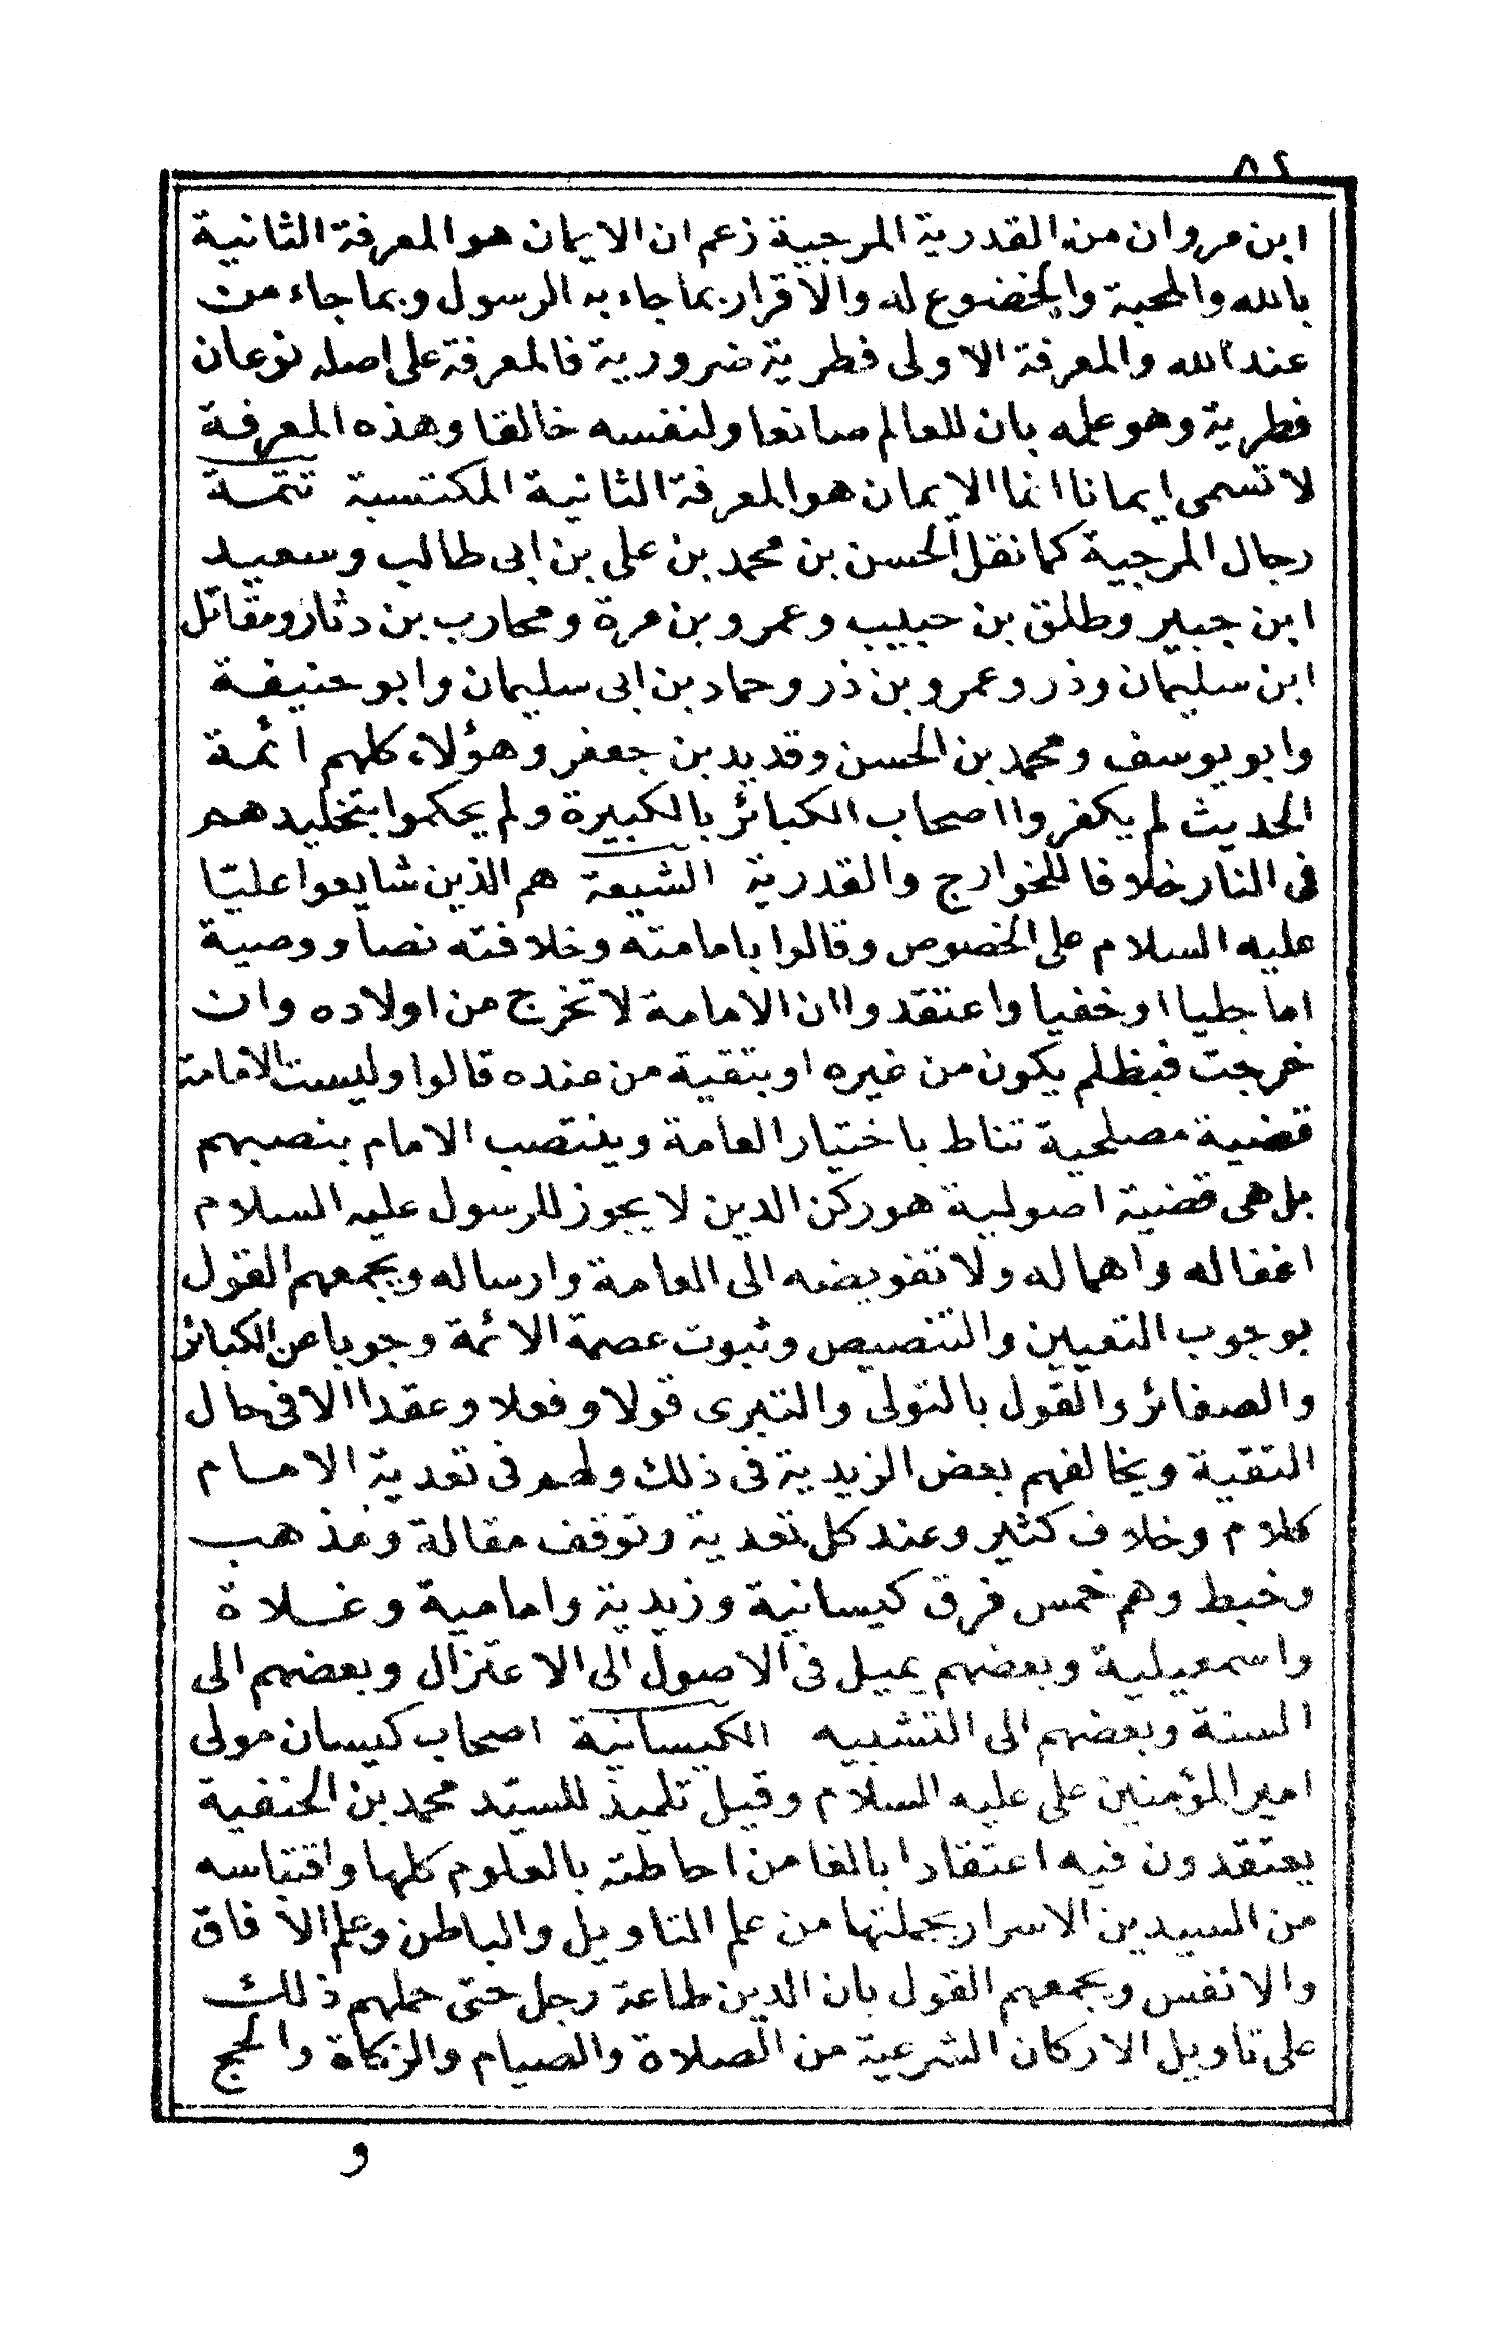 ٨٤
ابن مروان من القدرية المرجية زعم ان الايمان هو المعرفة الثانية
بالله والمحبة والخضوع له والاقرار بما جاء به الرسول وبما جاء من
عند الله والمعرفة الاولى فطرية ضرورية فالمعرفة على اصله نوعان
فطرية وهو علمه بان للعالم صانعا ولنفسه خالقا وهذه المعرفة
لا تسمى ايمانا انما الايمان هو المعرفة الثانية المكتسبة تتمة
رجال المرجية كما نقل الحسن بن محمد بن على بن ابى طالب وسعيد
ابن جبير وطلق بن حبيب وعمرو بن مرة ومحارب بن دثار ومقاتل
ابن سليمان وذر وعمرو بن ذر وحماد بن ابى سليمان وابو حنيفة
وابو يوسف ومحمد بن الحسن وقديد بن جعفر وهؤلاء كلهم ائمة
الحديث لم يكفروا اصحاب الكبائر بالكبيرة ولم يحكموا بتخليدهم
فى النار خلافا للخوارج والقدرية الشيعة هم الذين شايعوا عليّا
عليه السلام على الخصوص وقالوا بامامته وخلافته نصا ووصية
اما جليا او خفيا واعتقدوا ان الامامة لا تخرج من اولاده وان
خرجت فبظلم يكون من غيره او بتقية من عنده قالوا وليست الامامة
قضية مصلحية تناط باختيار العامة وينتصب الامام بنصبهم
بل هى قضية اصولية هو ركن الدين لا يجوز للرسول عليه السلام
اغفاله واهماله ولا تفويضه الى العامة وارساله ويجمعهم القول
بوجوب التعيين والتنصيص وثبوت عصمة الائمة وجوبا عن الكبائر
والصغائر والقول بالتولى والتبرى قولا وفعلا وعقدا الا فى حال
التقية ويخالفهم بعض الزيدية فى ذلك ولهم فى تعدية الامام
كلام وخلاف كثير وعند كل تعدية وتوقف مقالة ومذهب
وخبط وهم خمس فرق كيسانية وزيدية وامامية وغلاة
واسمعيلية وبعضهم يميل فى الاصول الى الاعتزال وبعضهم الى
السنة وبعضهم الى التشبيه الكيسانية اصحاب كيسان مولى
امير المؤمنين على عليه السلام وقيل تلميذ للسيّد محمد بن الحنفية
يعتقدون فيه اعتقادا بالغا من احاطته بالعلوم كلها واقتباسه
من السيدين الاسرار بجملتها من علم التاويل والباطن وعلم الافاق
والانفس ويجمعهم القول بان الدين طاعة رجل حتى حملهم ذلك
على تاويل الاركان الشرعية من الصلاة والصيام والزكاة والحج
و